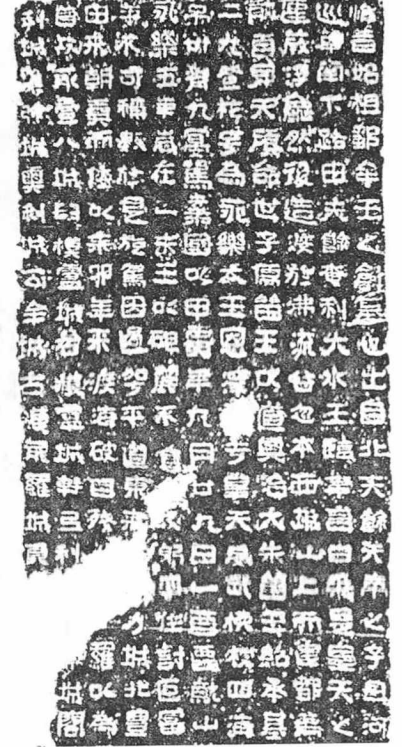 惟昔始祖鄒牟王之創基也出自北夫餘天帝之子母河
巡車南下路由夫餘奄利大水王臨津言曰我是皇天之
連葭浮龜然後造渡於沸流谷忽本西城山上而建都焉
龍頁昇天顧命世子儒留王以道興治大朱留王紹承基
二九登祚號爲永樂太王恩于皇天威武振被四海
弔卅有九宴駕棄國以甲寅年九月廿九日乙酉遷就山
永樂五年歲在乙未王以碑麗不息躬率住討叵富
羊不可稱數於是旋駕因過平道東來力城北豐
由來朝貢而倭以辛卯年來渡海破百殘羅以爲
首攻取壹八城臼模盧城各模盧城幹弖利城閣
利城城奧利城古牟城古須耶羅城頁